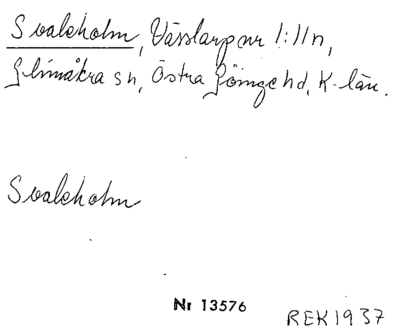 Svaleholm, Vässlarp nr 1:11n,
Glimåkra sn, Östra Göinge hd, K. län.
Svaleholm
Nr 13576
REK1937